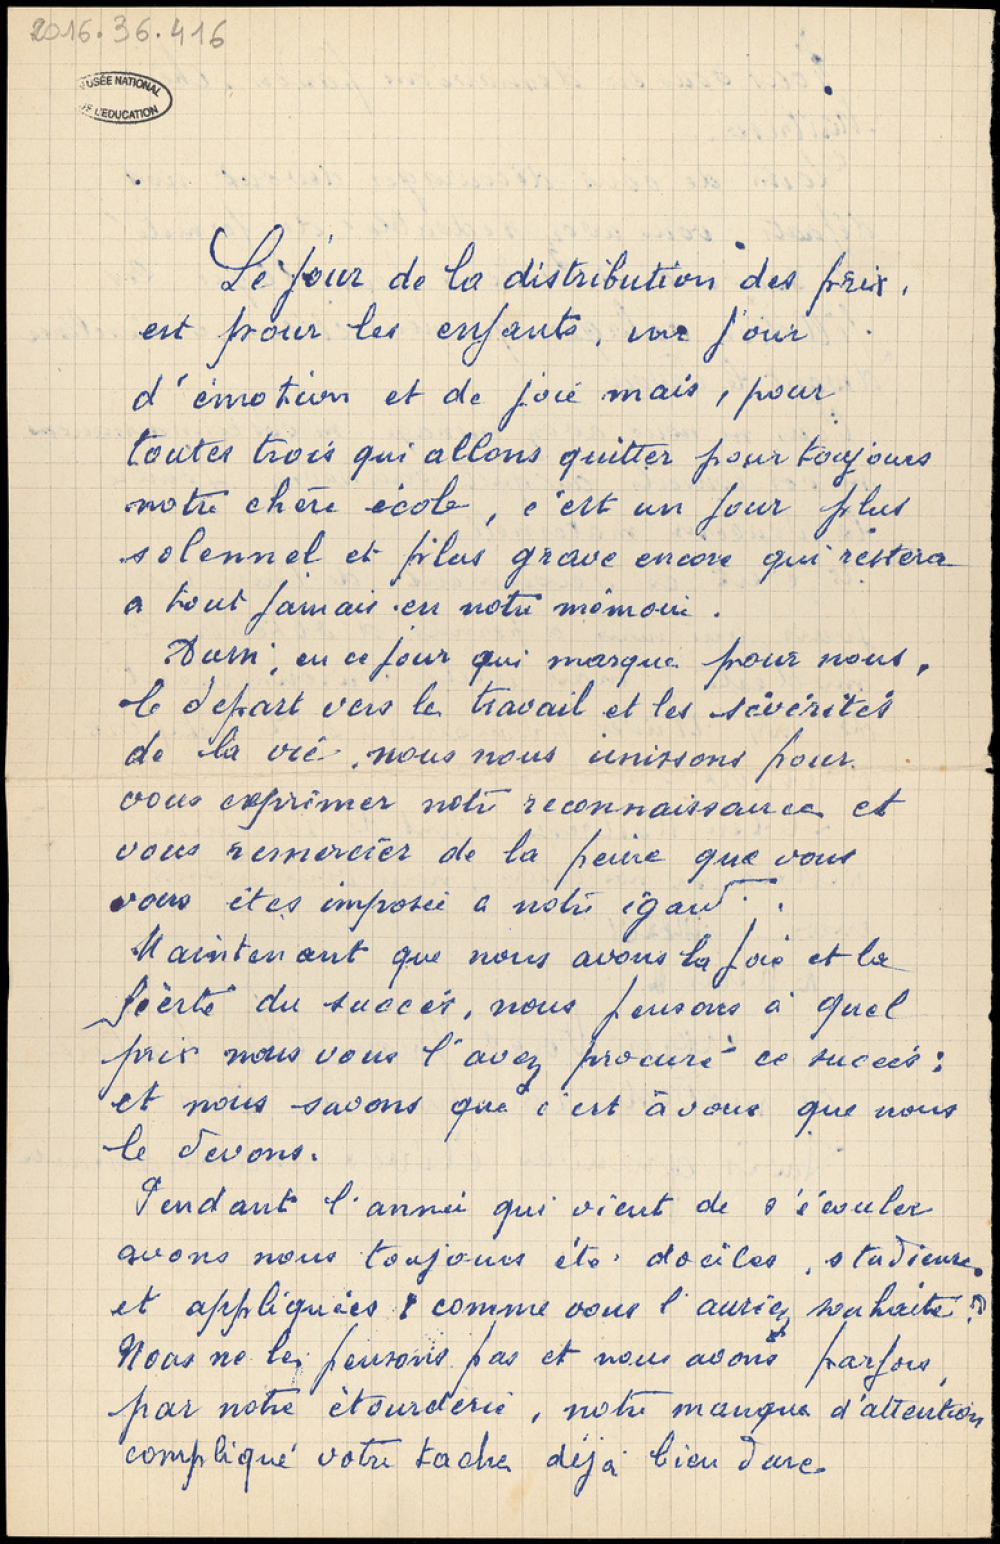 2016.36.416
MUSÉE NATIONAL
DE L'EDUCATION
Le jour de la distribution des prix,
est pour les enfants, un jour
d'émotion et de joie mais, pour
toutes trois qui allons quitter pour toujours
notre chère école, c'est un jour plus
solennel et plus grave encore qui restera
a tout jamais en notre mémoire.
Aussi, en ce jour qui marque pour nous,
le départ vers le travail et les sévérités
de la vie, nous nous unissons pour
vous exprimer notre reconnaissance et
vous remercier de la peine que vous
vous êtes imposée a notre égard.
Maintenant que nous avons la joie et la
fierté du succès, nous pensons à quel
prix nous vous l'avez procuré ce succès :
et nous savons que c'est à vous que nous
le devons.
Pendant l'année qui vient de s'écouler
avons nous toujours été dociles, studieuses
et appliquées comme vous l'auriez souhaité ?
Nous ne le pensons pas et nous avons parfois,
par notre étourderie, notre manque d'attention
compliqué votre tache déjà bien dure